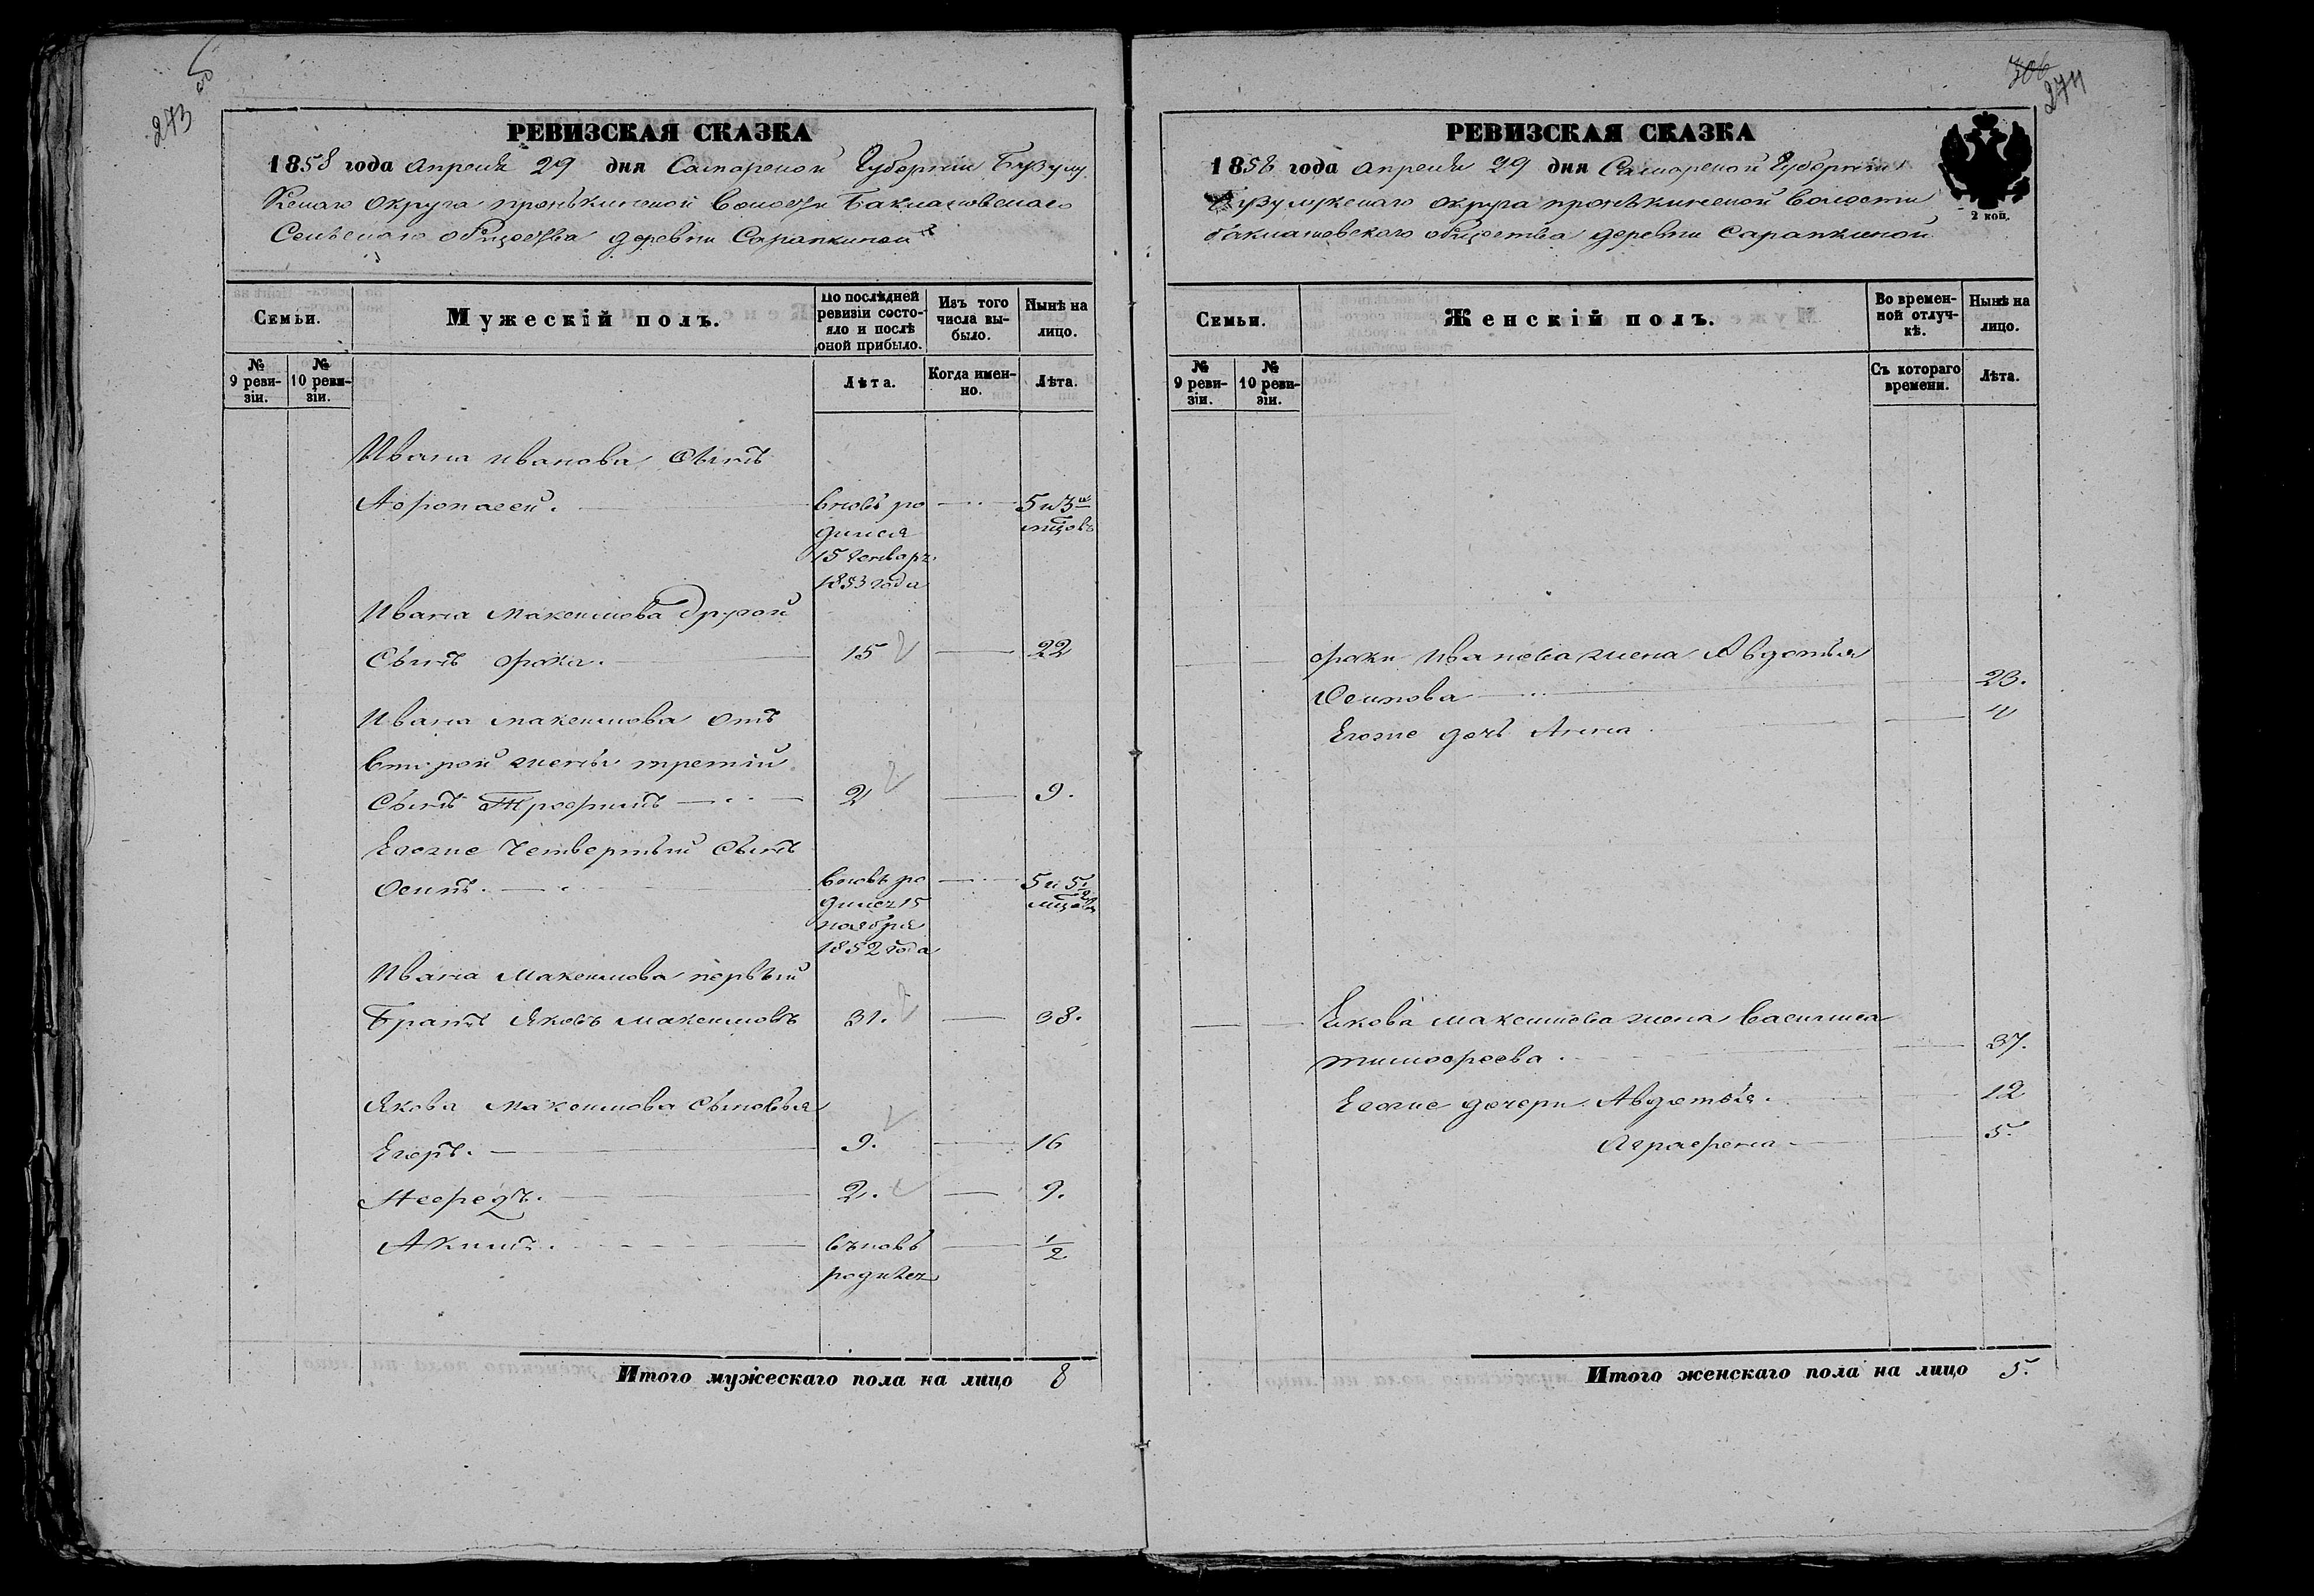 273
РЕВИЗСКАЯ СКАЗКА
1858 года апреля 29 дня Самарской Губернии Бузулу
кскаго округа пронькинской волости Баклановскаго
Сельскаго общества деревни Сарапкиной
Семьи.
Мужескій полъ.
По послѣдней ревизіи состояло и послѣ оной прибыло.
Изъ того числа выбыло.
Нынѣ на лицо.
№ 9 ревизіи.
№ 10 ревизіи.
Лѣта.
Когда именно.
Лѣта.
Ивана иванова сынъ
Афонасей.
вновь ро
дился
15 генваря
1853 года
5 и 3 ½
мѣцовъ
Ивана максимова другой
сынъ фока. 15 22
Ивана максимова отъ
второй жены третій
сынъ Трофимъ 2 9.
Егоже четвертый сынъ
Осипъ.
вновь ро
дился 15
ноября
1852 года
5 и 5 ½
мѣцовъ
Ивана максимова первый
Братъ Яковъ максимовъ 31. 38.
Якова максимова сыновья
Егоръ. 9. 16
Нефедъ. 2. 9.
Акимъ. вновь ½
родился
Итого мужескаго пола на лицо 8
306
274
РЕВИЗСКАЯ СКАЗКА
2 коп.
1858 года апреля 29 дня Самарской Губернии
Бузулукскаго округа пронькинской волости
баклановскаго общества деревни Сарапкиной
Семьи.
Женскій полъ.
Во временной отлучкѣ.
Нынѣ на лицо.
№ 9 ревизіи.
№ 10 ревизіи.
Съ котораго времени.
Лѣта.
фоки Иванова жена Авдотья
Осипова 23.
Егоже дочь Анна. 4
Якова максимова жена Василиса
тимофеева. 37.
Егоже дочери Авдотья. 12
Аграфена 5.
Итого женскаго пола на лицо 5.